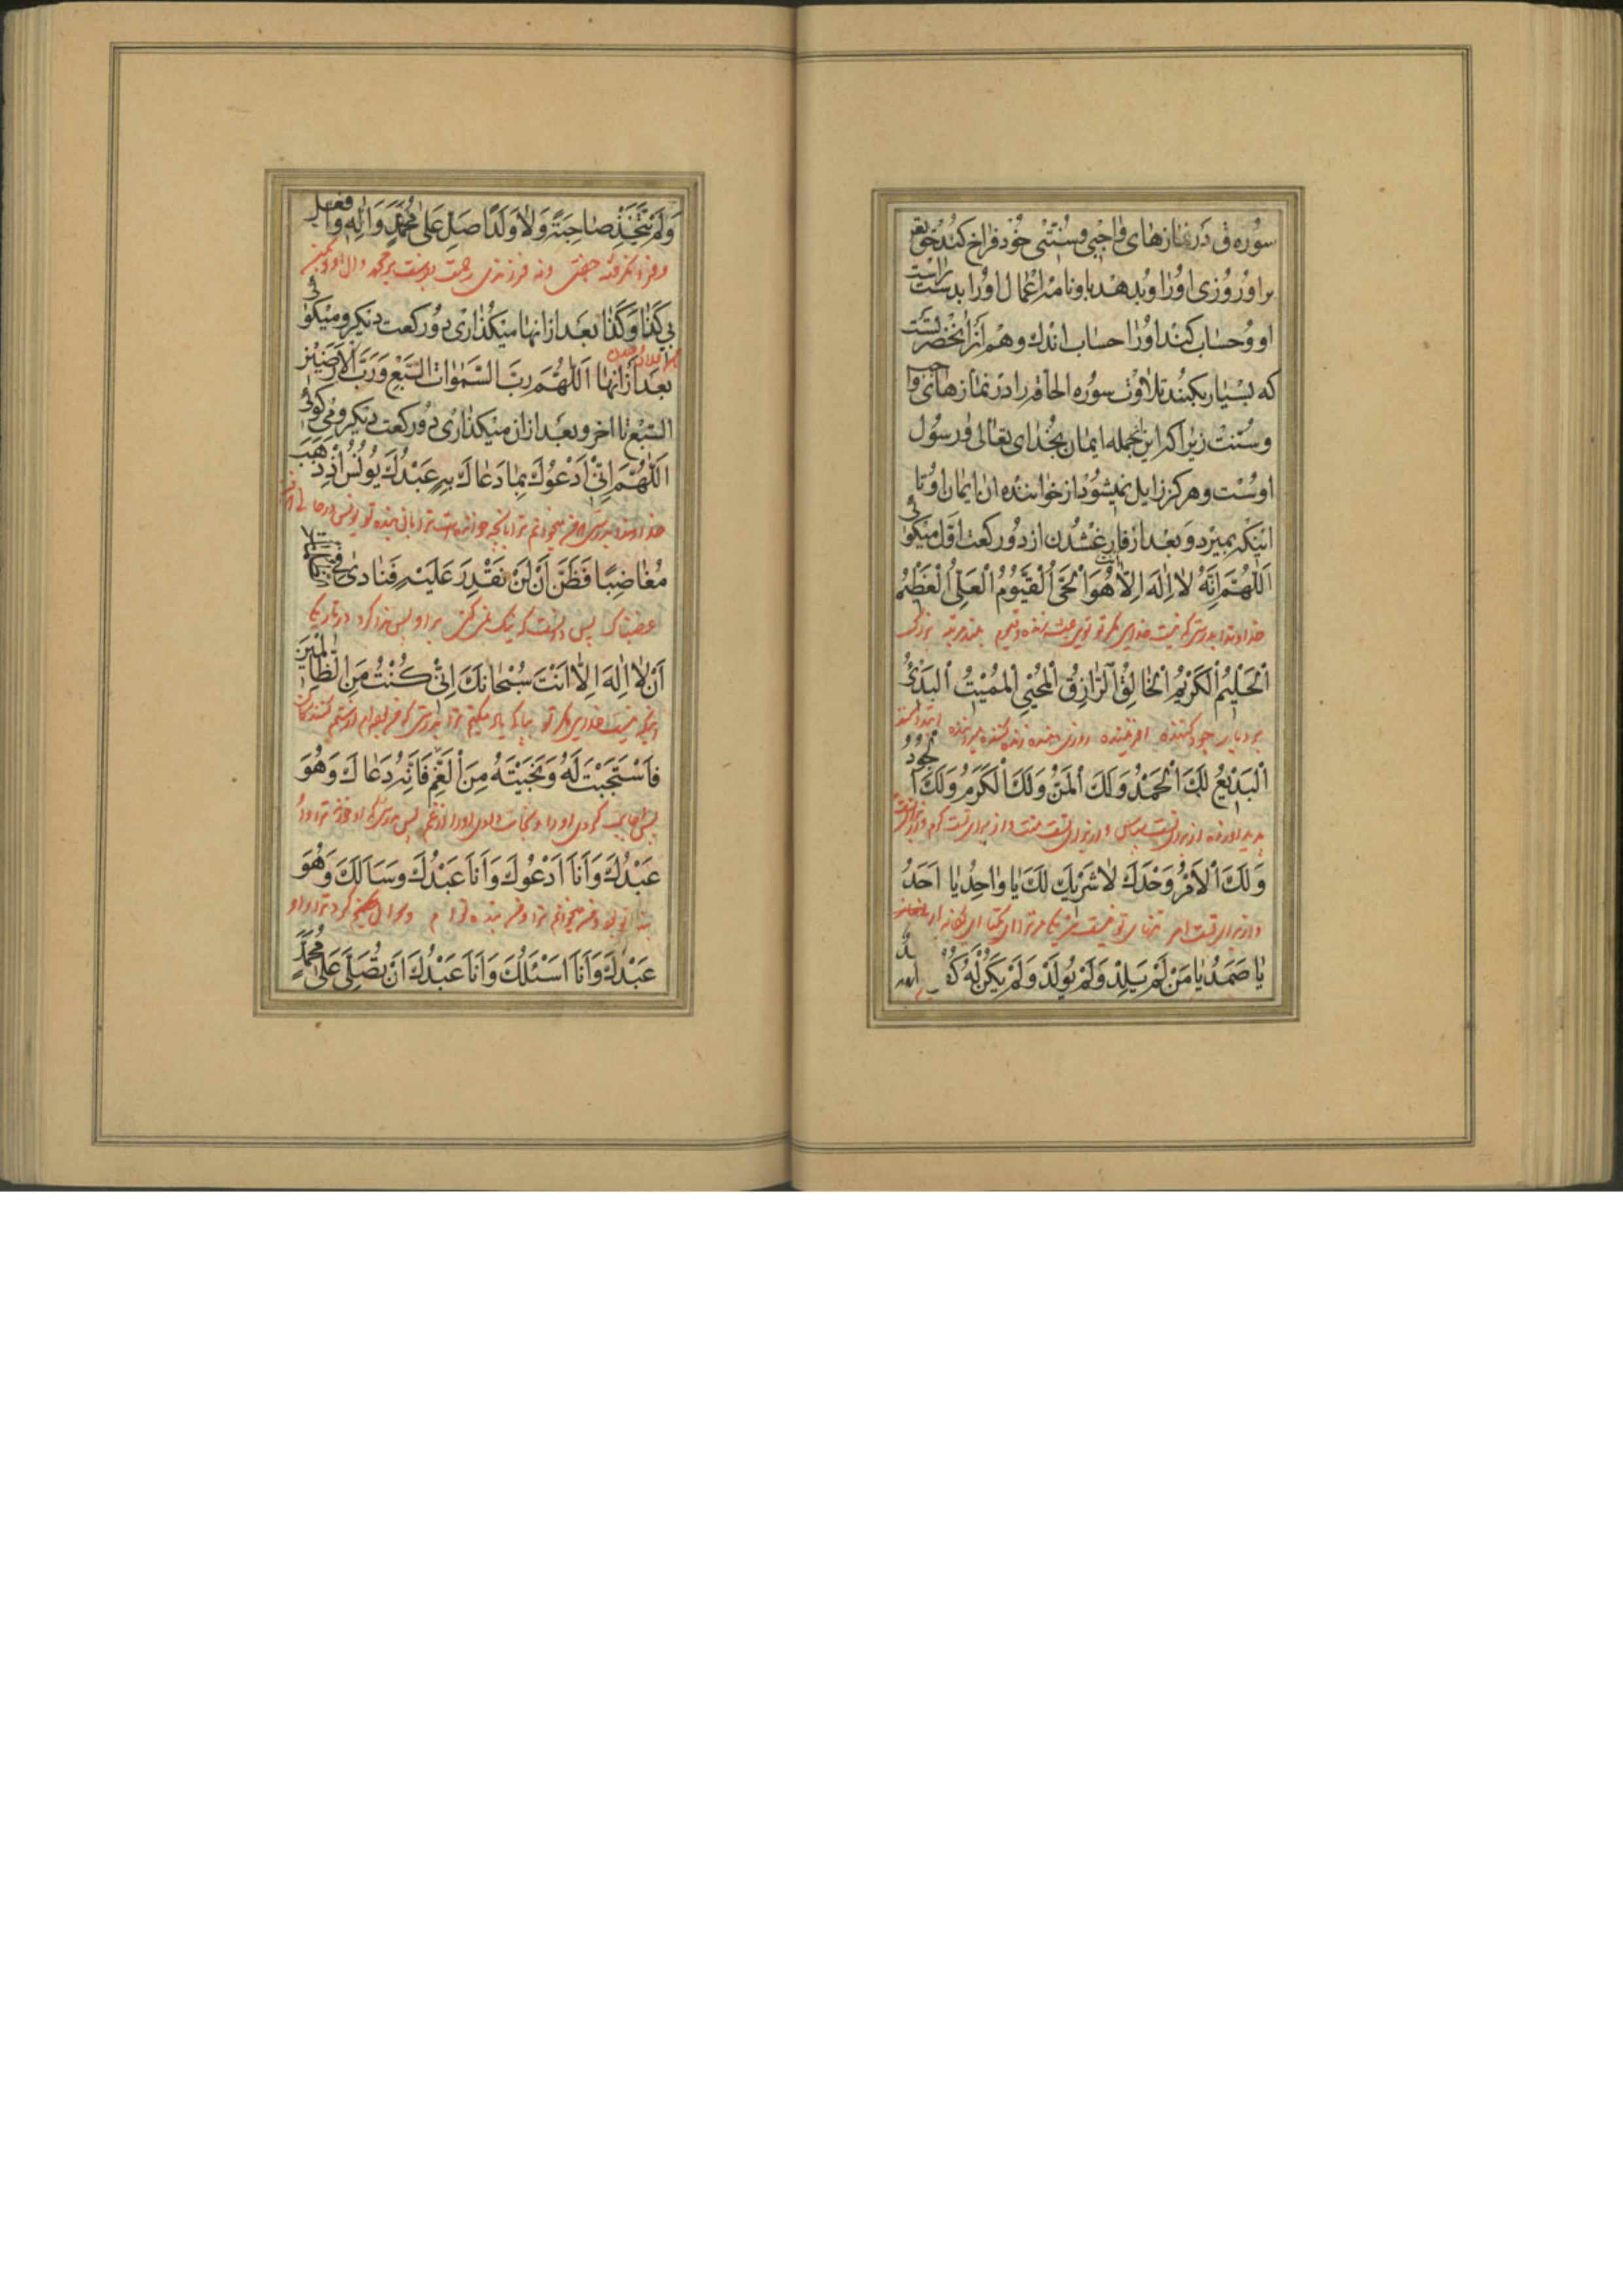 سوره ق در نمازهای واجبی و سنتی خود فراخ کند حق تعالی
بر او روزی او را و بدهد باو نامه اعمال او را بدست راست
او و حساب کند او را حساب اندک و هم از آنحضرتست
که بسیار بکنید تلاوت سوره الحاقه را در نمازهای واجب
و سنت زیرا که این جمله ایمان بخدای تعالی و رسول
اوست و هرگز زایل نمیشود از خواننده آن ایمان او تا
اینکه بمیرد و بعد از فارغ شدن از دو رکعت اول میگوئی
اَللّٰهُمَّ اِنَّهُ لاٰ اِلٰهَ اِلاّٰ هُوَ اَلْحَیُّ اَلْقَیُّومُ اَلْعَلِیُّ اَلْعَظِیْمُ
خداوندا بدرستی که نیست خدای مگر تو توئی زنده و قیوم بلند مرتبه بزرگ
اَلْحَلِیْمُ اَلْکَرِیْمُ اَلْخٰالِقُ اَلرّٰازِقُ اَلْمُحْیِیْ اَلْمُمِیْتُ اَلْبَدِیْءُ
بردبار جود کننده افریننده روزی دهنده زنده کننده میراننده ابتدا کننده
اَلْبَدِیْعُ لَکَ اَلْحَمْدُ وَلَکَ اَلْمَنُّ وَلَکَ اَلْکَرَمُ وَلَکَ اَلْجُودُ
پدید اورنده از برای تست سپاس و از برای تست منت و از برای تست کرم و از برای تست
وَ لَکَ اَلْاَمْرُ وَحْدَکَ لاٰ شَرِیْکَ لَکَ یٰا وٰاحِدُ یٰا اَحَدُ
و از برای تست امر تنهای تو نیست شریک مر ترا ای یکتا ای یگانه
یٰا صَمَدُ یٰا مَنْ لَمْ یَلِدْ وَلَمْ یُولَدْ وَلَمْ یَکُنْ لَهُ کُفُ
وَلَمْ یَتَّخِذْ صٰاحِبَةً وَلاٰ وَلَدًا صَلِّ عَلٰی مُحَمَّدٍ وَاٰلِهِ وَافْعَلْ
و فرا نگرفته جفتی و نه فرزندی رحمت بفرست بر محمد و ال او و بکن
بِیْ کَذٰا وَ کَذٰا بعد از انها میگذاری دو رکعت دیگر و میگوئی
بعد از انها اَللّٰهُمَّ رَبَّ السَّمٰوٰاتِ السَّبْعِ وَرَبَّ الْاَرَضِیْنَ
السَّبْعِ تا اخر و بعد از ان میگذاری دو رکعت دیگر و میگوئی
اَللّٰهُمَّ اِنِّیْ اَدْعُوْکَ بِمٰا دَعٰاکَ بِهِ عَبْدُکَ یُونُسُ اِذْ ذَهَبَ
خداوندا بدرستی که من میخوانم ترا بانچه خوانده است ترا بان بنده تو یونس
مُغٰاضِبًا فَظَنَّ اَنْ لَنْ نَقْدِرَ عَلَیْهِ فَنٰادٰی فِی الظُّلُمٰاتِ
غضبناک پس دانست که تنگ نمیکنی بر او پس ندا کرد در تاریکیها
اَنْ لاٰ اِلٰهَ اِلاّٰ اَنْتَ سُبْحٰانَکَ اِنِّیْ کُنْتُ مِنَ الظّٰالِمِیْنَ
اینکه نیست خدای مگر تو بپاکی یاد میکنم ترا بدرستی که من بودم از ستم کنندگان
فَاسْتَجَبْتَ لَهُ وَنَجَّیْتَهُ مِنَ الْغَمِّ فَاِنَّهُ دَعٰاکَ وَهُوَ
پس اجابت کردی او را و نجات دادی او را از غم پس بدرستی که او خواند ترا و او
عَبْدُکَ وَاَنَا اَدْعُوکَ وَاَنَا عَبْدُکَ وَسَاَلَکَ وَهُوَ
بنده تو بود و من میخوانم ترا و من بنده تو ام و سوال کرد ترا و او
عَبْدُکَ وَاَنَا اَسْئَلُکَ وَاَنَا عَبْدُکَ اَنْ تُصَلِّیَ عَلٰی مُحَمَّدٍ